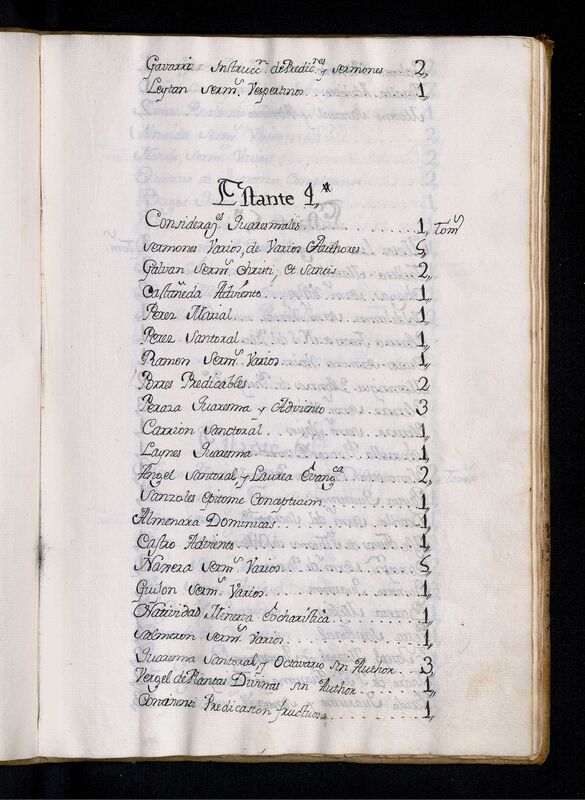 Gavarri Instrucc.n de Predic.res y Sermones 2,,
Leytan Serm.s Vespertino 1,,
Estante 4,,*
Considerac.es Quaresmales 1,, Tom.s
Sermones Varios, de Varios Authores 5,,
Galvan Serm.s Christi, et Sanctis 2,,
Castañeda Adviento 1,,
Perez Marial 1,,
Perez Santoral 1,,
Ramon Serm.s Varios 1,,
Porres Predicables 2
Peraza Quaresma y Adviento 3
Carrion Sanctoral 1,,
Laynes Quaresma 1,,
Angel Santoral, y Laurea Evang.ca 2,,
Sanzoles Epitome Conceptuum 1,,
Almenara Dominicas 1,,
Castro Adviento 1,,
Naxera Serm.s Varios 5,,
Guilon Serm.s Varios 1,,
Natividad Minerva Eucharistica 1,,
Salmeron Serm.s Varios 1,,
Quaresma Santoral, y Octavario sin Author 3,,
Vergel de Plantas Divinas sin Author 1,,
Continenti Predicasion fructuosa 1,,